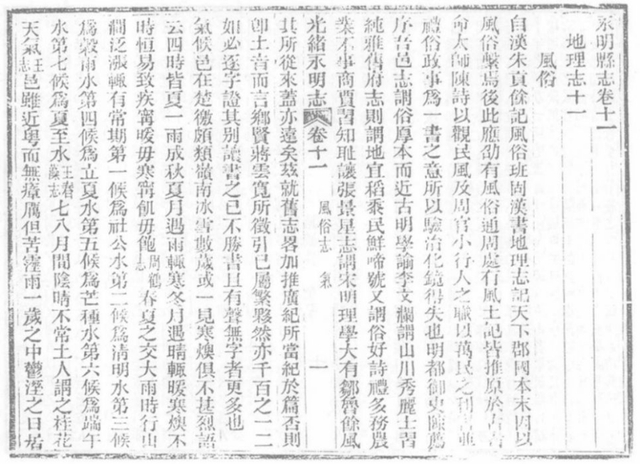 永明縣志卷十一
地理志十一
風俗
自漢朱貢餘記風俗班固漢書地理志記天下郡國本末因以
風俗繫焉後此應劭有風俗通周處有風土記皆推原於古者
命太師陳詩以觀民風及周官小行人之職以萬民之利害並
禮俗政事爲一書之意所以驗治化鏡得失也明都御史陳薦
序吾邑志謂俗厚本而近古明學諭李文瀾謂山川秀麗士習
純雅舊府志則謂地宜稻桑民鮮啼號又謂俗好詩禮多務農
業不事商賈習知恥讓張景星志謂宋明理學大有鄒魯餘風
光緒永明志 卷十一 風俗志 一
其所從來蓋亦遠矣茲就舊志畧加推廣紀所當紀於篇否則
卽土音而言鄉賢蔣雲寬所徵引已屬繁夥然亦千百之一二
如必逐字證其别讀書之已不勝書且有聲無字者更多也
氣候邑在楚徼頗類嶺南冰雪數歲或一見寒燠俱不甚烈語
云四時皆夏一雨成秋夏月遇雨輒寒冬月遇晴輒暖寒燠不
時恒易致疾寗暖毋寒寗飢毋飽周鶴志春夏之交大雨時行山
澗泛漲輒有常期第一候爲社公水第二候爲清明水第三候
爲穀雨水第四候爲立夏水第五候爲芒種水第六候爲端午
水第七候爲夏至水王春藻志七八月間陰晴不常土人謂之桂花
天氣王志邑雖近粵而無瘴癘但苦霪雨一歲之中鬱溼之日居